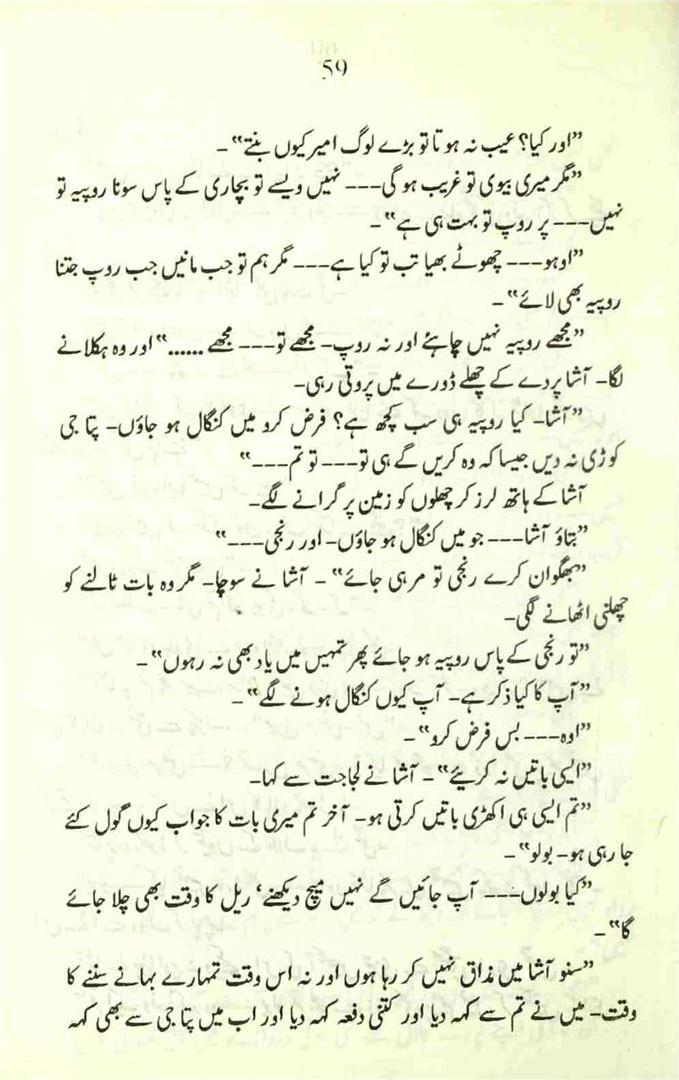 59
"اور کیا؟ عیب نہ ہوتا تو بڑے لوگ امیر کیوں بنتے"۔
"مگر میری بیوی تو غریب ہوگی--- نہیں ویسے تو بچاری کے پاس سونا روپیہ تو
نہیں--- پر روپ تو بہت ہی ہے"۔
"اوہو--- چھوٹے بھیا تب تو کیا ہے--- مگر ہم تو جب مانیں جب روپ جتنا
روپیہ بھی لائے"۔
"مجھے روپیہ نہیں چاہئے اور نہ روپ- مجھے تو--- مجھے ......" اور وہ ہکلانے
لگا- آشا پردے کے چھلے ڈورے میں پروتی رہی-
"آشا- کیا روپیہ ہی سب کچھ ہے؟ فرض کرو میں کنگال ہو جاؤں- پتا جی
کوڑی نہ دیں جیسا کہ وہ کریں گے ہی تو--- تو تم---"
آشا کے ہاتھ لرز کر چھلوں کو زمین پر گرانے لگے-
"بتاؤ آشا--- جو میں کنگال ہو جاؤں- اور رنجی---"
"بھگوان کرے رنجی تو مر ہی جائے"- آشا نے سوچا- مگر وہ بات ٹالنے کو
چھلنی اٹھانے لگی-
"تو رنجی کے پاس روپیہ ہو جائے پھر تمہیں میں یاد بھی نہ رہوں"۔
"آپ کا کیا ذکر ہے- آپ کیوں کنگال ہونے لگے"۔
"اوہ--- بس فرض کرو"۔
"ایسی باتیں نہ کریئے"- آشا نے لجاجت سے کہا-
"تم ایسی ہی اکھڑی باتیں کرتی ہو- آخر تم میری بات کا جواب کیوں گول کئے
جا رہی ہو- بولو"۔
"کیا بولوں--- آپ جائیں گے نہیں میچ دیکھنے، ریل کا وقت بھی چلا جائے
گا"۔
"سنو آشا میں مذاق نہیں کر رہا ہوں اور نہ اس وقت تمہارے بہانے سننے کا
وقت- میں نے تم سے کہہ دیا اور کتنی دفعہ کہہ دیا اور اب میں پتا جی سے بھی کہہ